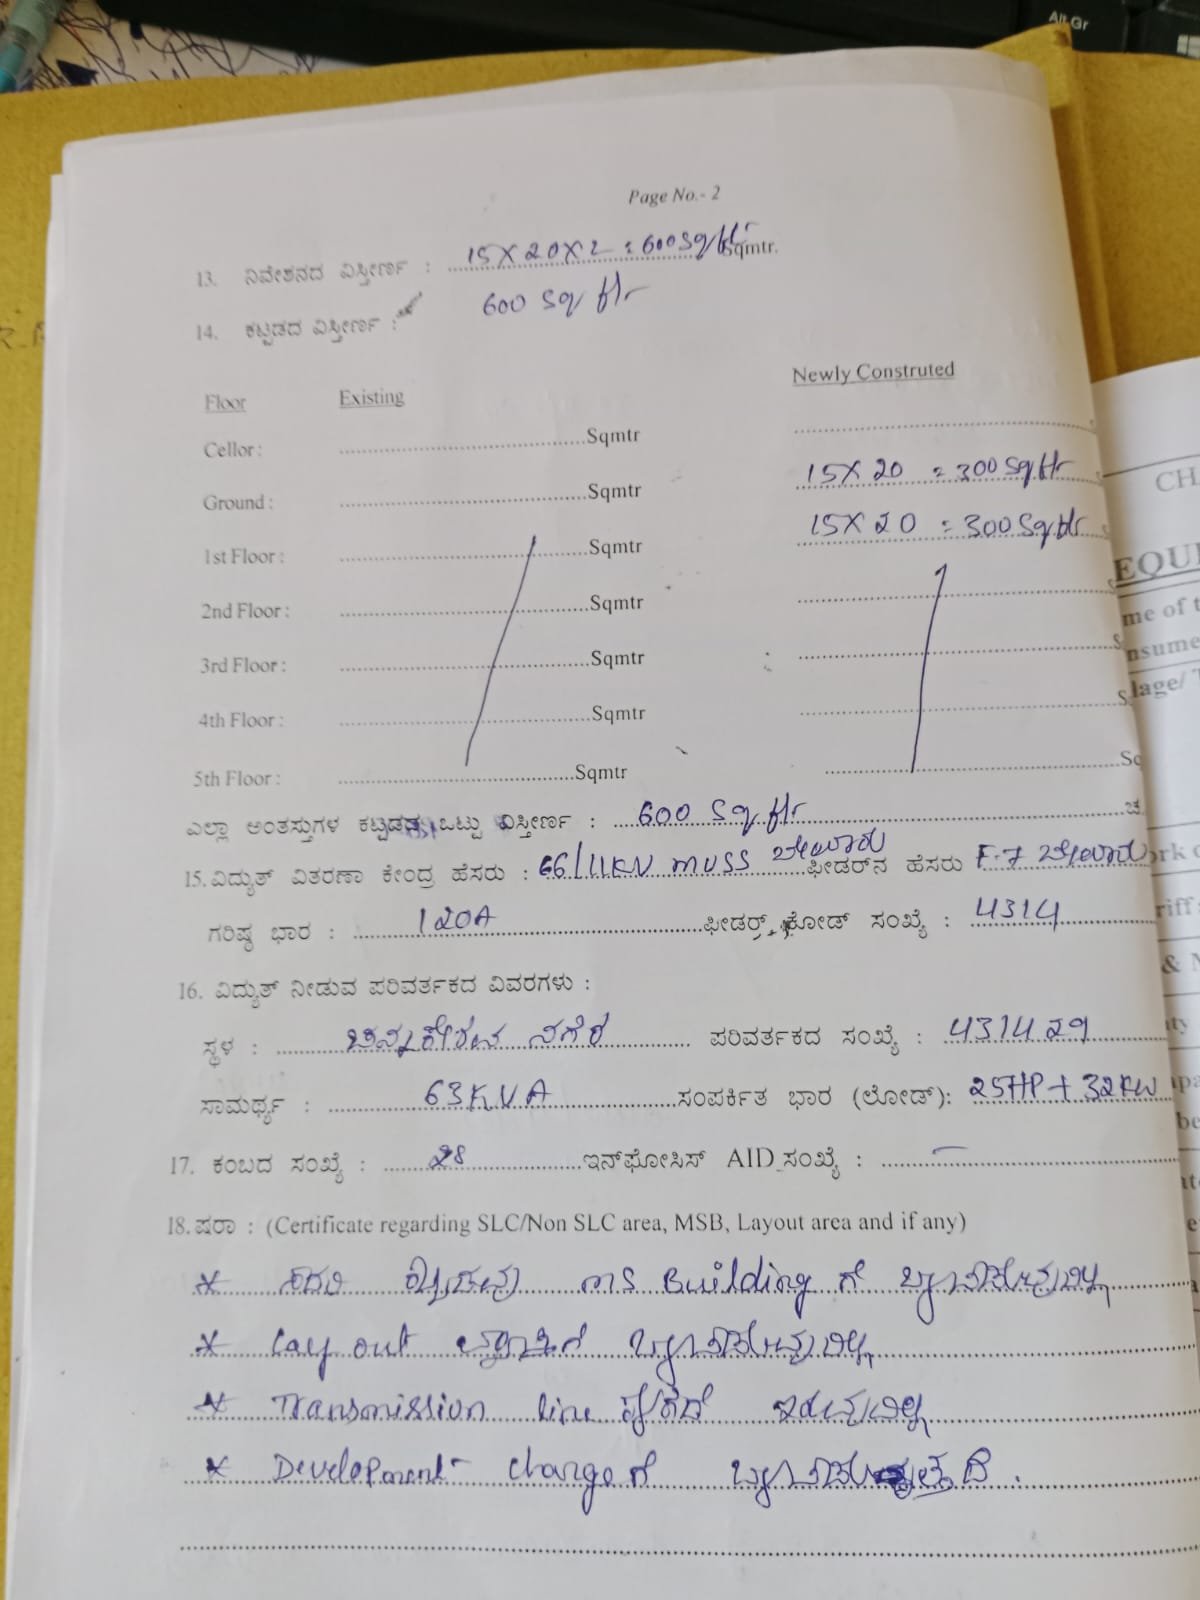 Alt Gr
Page No.- 2
13. ನಿವೇಶನದ ವಿಸ್ತೀರ್ಣ : 15 X 20 X 2 = 600 Sq ftr Sqmtr.
14. ಕಟ್ಟಡದ ವಿಸ್ತೀರ್ಣ : 600 Sq ftr
Floor Existing Newly Construted
Cellor : Sqmtr
Ground : Sqmtr 15 X 20 = 300 Sq ftr
1st Floor : Sqmtr 15 X 20 = 300 Sq ftr
2nd Floor : Sqmtr
3rd Floor : Sqmtr
4th Floor : Sqmtr
5th Floor : Sqmtr Sq
ಎಲ್ಲಾ ಅಂತಸ್ತುಗಳ ಕಟ್ಟಡದ ಒಟ್ಟು ವಿಸ್ತೀರ್ಣ : 600 Sq ftr ಚ
15. ವಿದ್ಯುತ್ ವಿತರಣಾ ಕೇಂದ್ರ ಹೆಸರು : 66/11KV MUSS ಬೇಲೂರು ಫೀಡರ್‌ನ ಹೆಸರು F-7 ಬೇಲೂರು
ಗರಿಷ್ಠ ಭಾರ : 120A ಫೀಡರ್ ಕೋಡ್ ಸಂಖ್ಯೆ : 4314
16. ವಿದ್ಯುತ್ ನೀಡುವ ಪರಿವರ್ತಕದ ವಿವರಗಳು :
ಸ್ಥಳ : ಚನ್ನಕೇಶವ ನಗರ ಪರಿವರ್ತಕದ ಸಂಖ್ಯೆ : 4314 29
ಸಾಮರ್ಥ್ಯ : 63KVA ಸಂಪರ್ಕಿತ ಭಾರ (ಲೋಡ್): 25HP + 32KW
17. ಕಂಬದ ಸಂಖ್ಯೆ : 28 ಇನ್‌ಫೋಸಿಸ್ AID ಸಂಖ್ಯೆ : —
18. ಷರಾ : (Certificate regarding SLC/Non SLC area, MSB, Layout area and if any)
* ಸದರಿ MS Building ಗೆ ಒಳಪಡುವುದಿಲ್ಲ
* Lay out ಒಳಪಡುವುದಿಲ್ಲ
* Transmission line ಇರುವುದಿಲ್ಲ
* Development charge ಗೆ ಒಳಪಡುತ್ತದೆ.
CH
EQUI
me of t
nsume
lage/ T